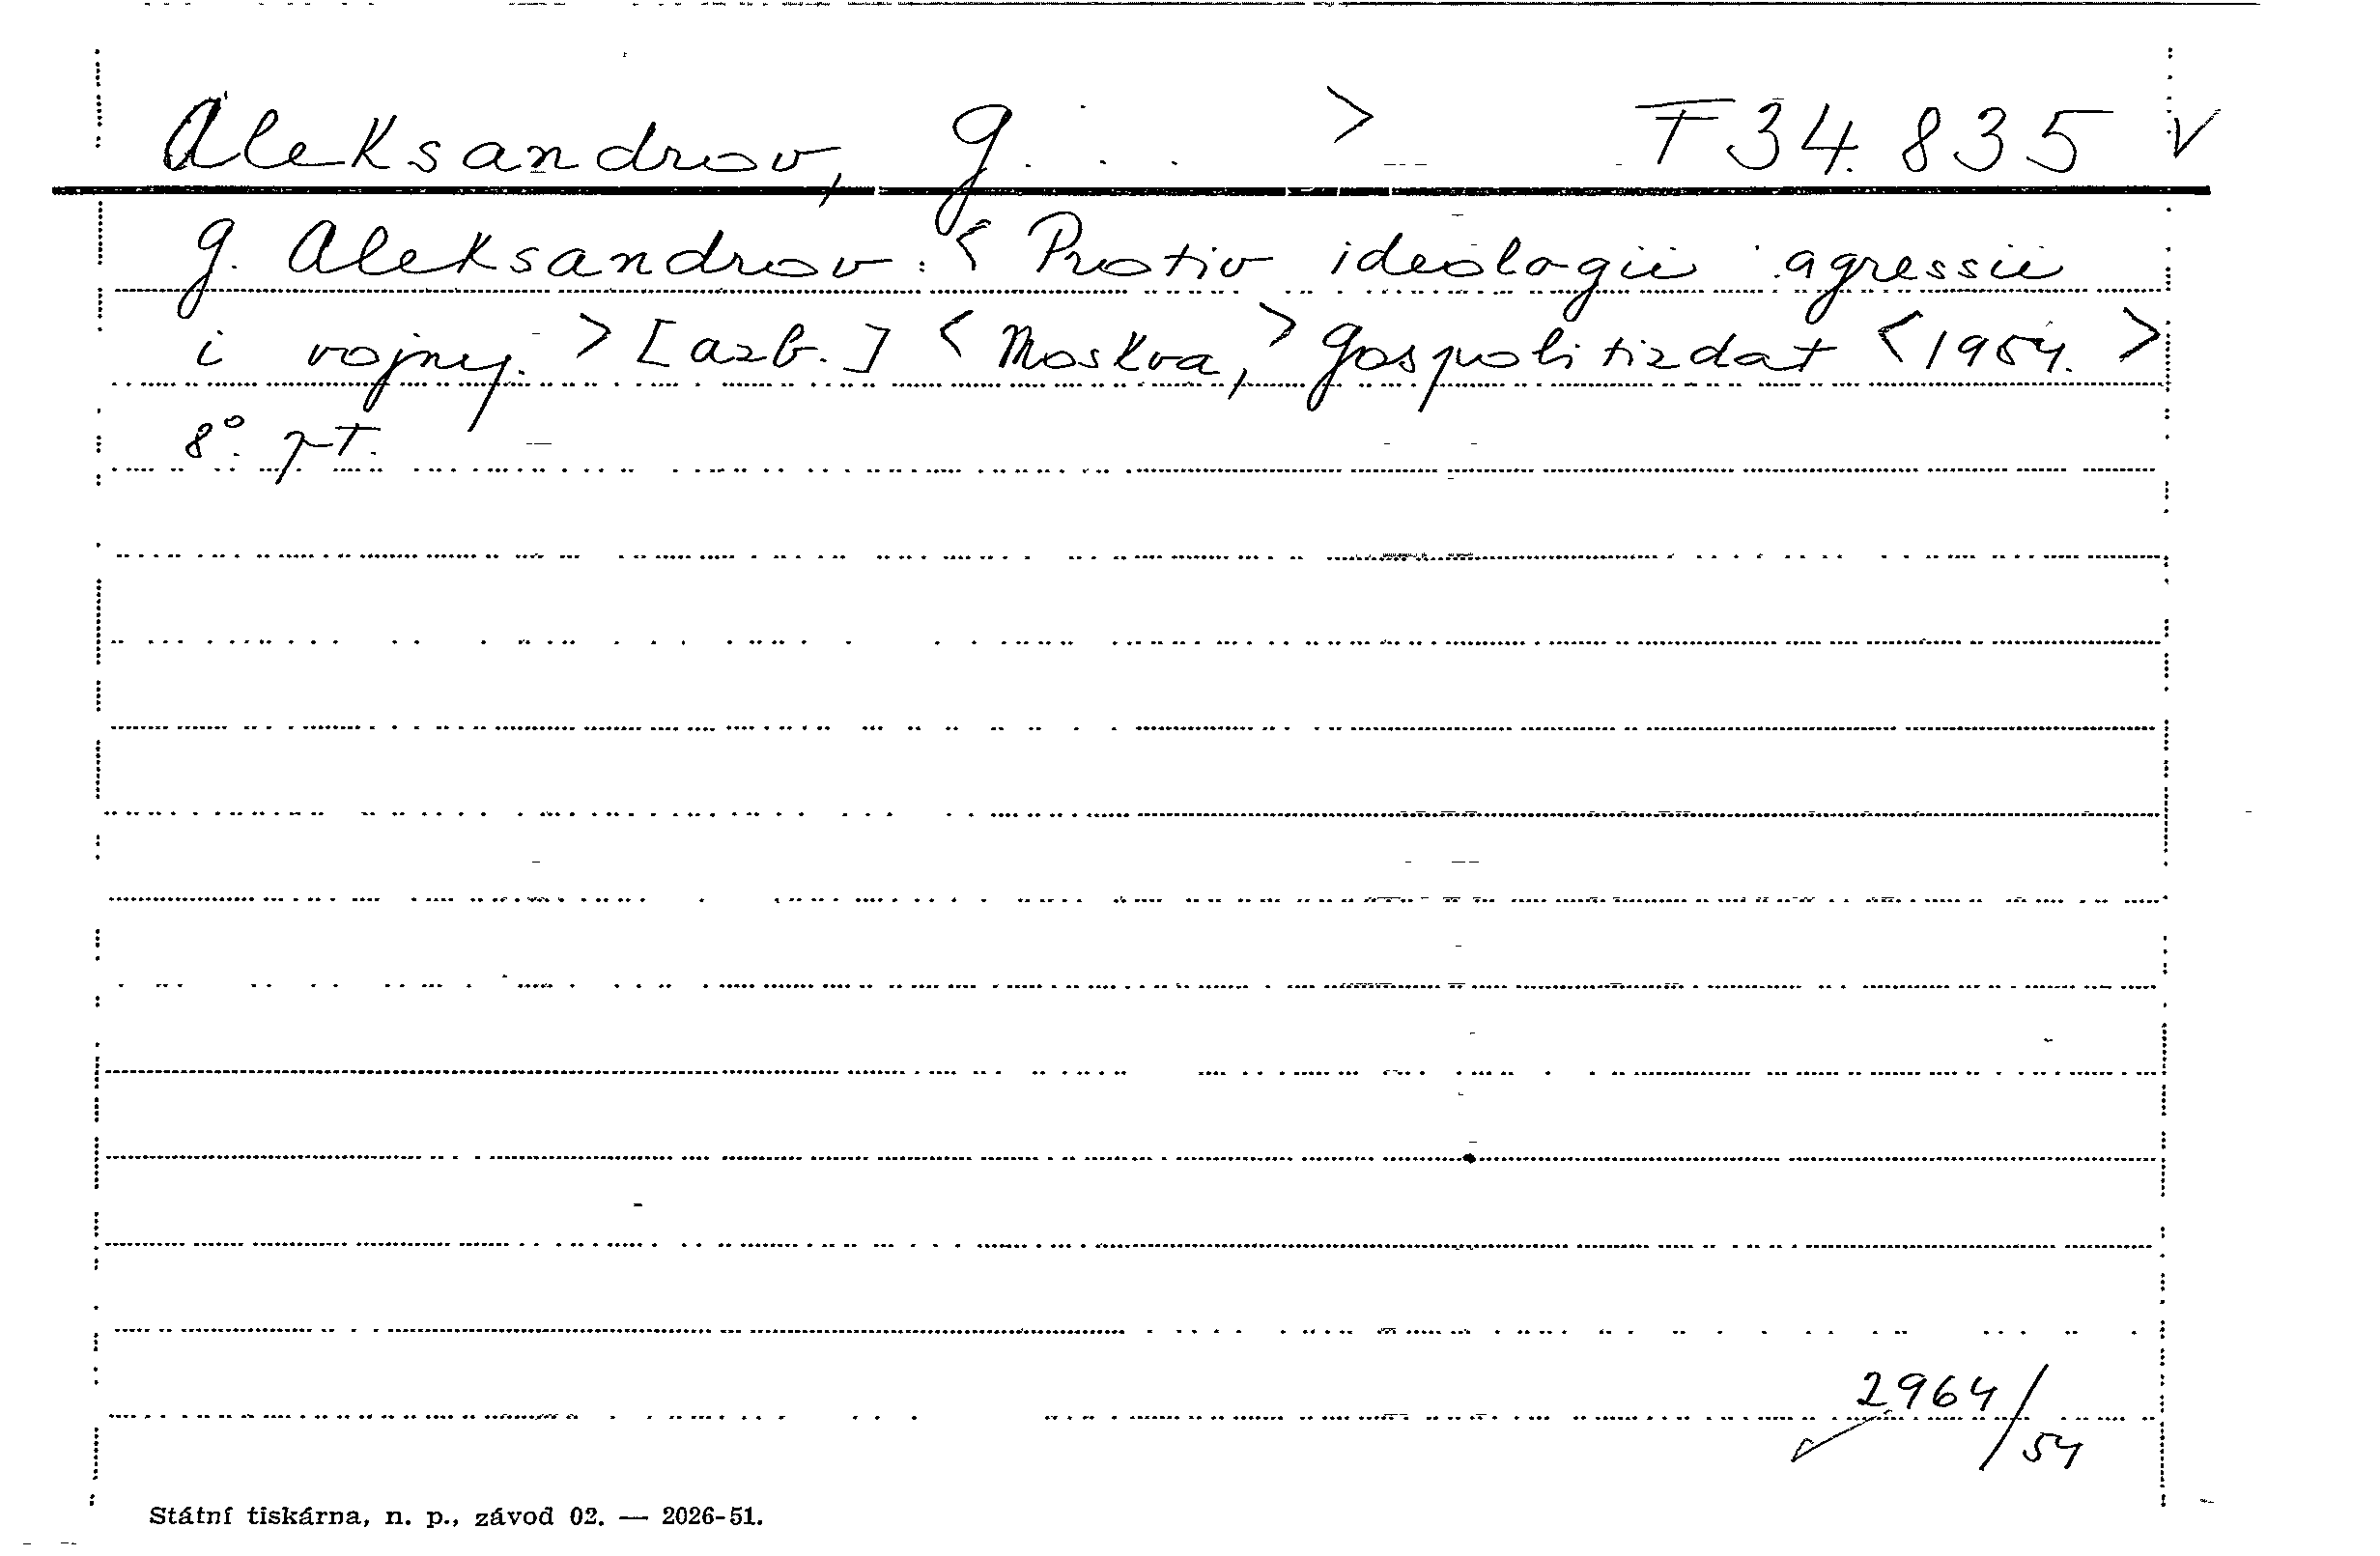 Aleksandrov, G. . . > T 34.835 v
G. Aleksandrov: < Protiv ideologii agressii
i vojny. > [azb.] < Moskva, > Gospolitizdat < 1954. >
8°. pT.
2964/54
Státní tiskárna, n. p., závod 02. — 2026-51.